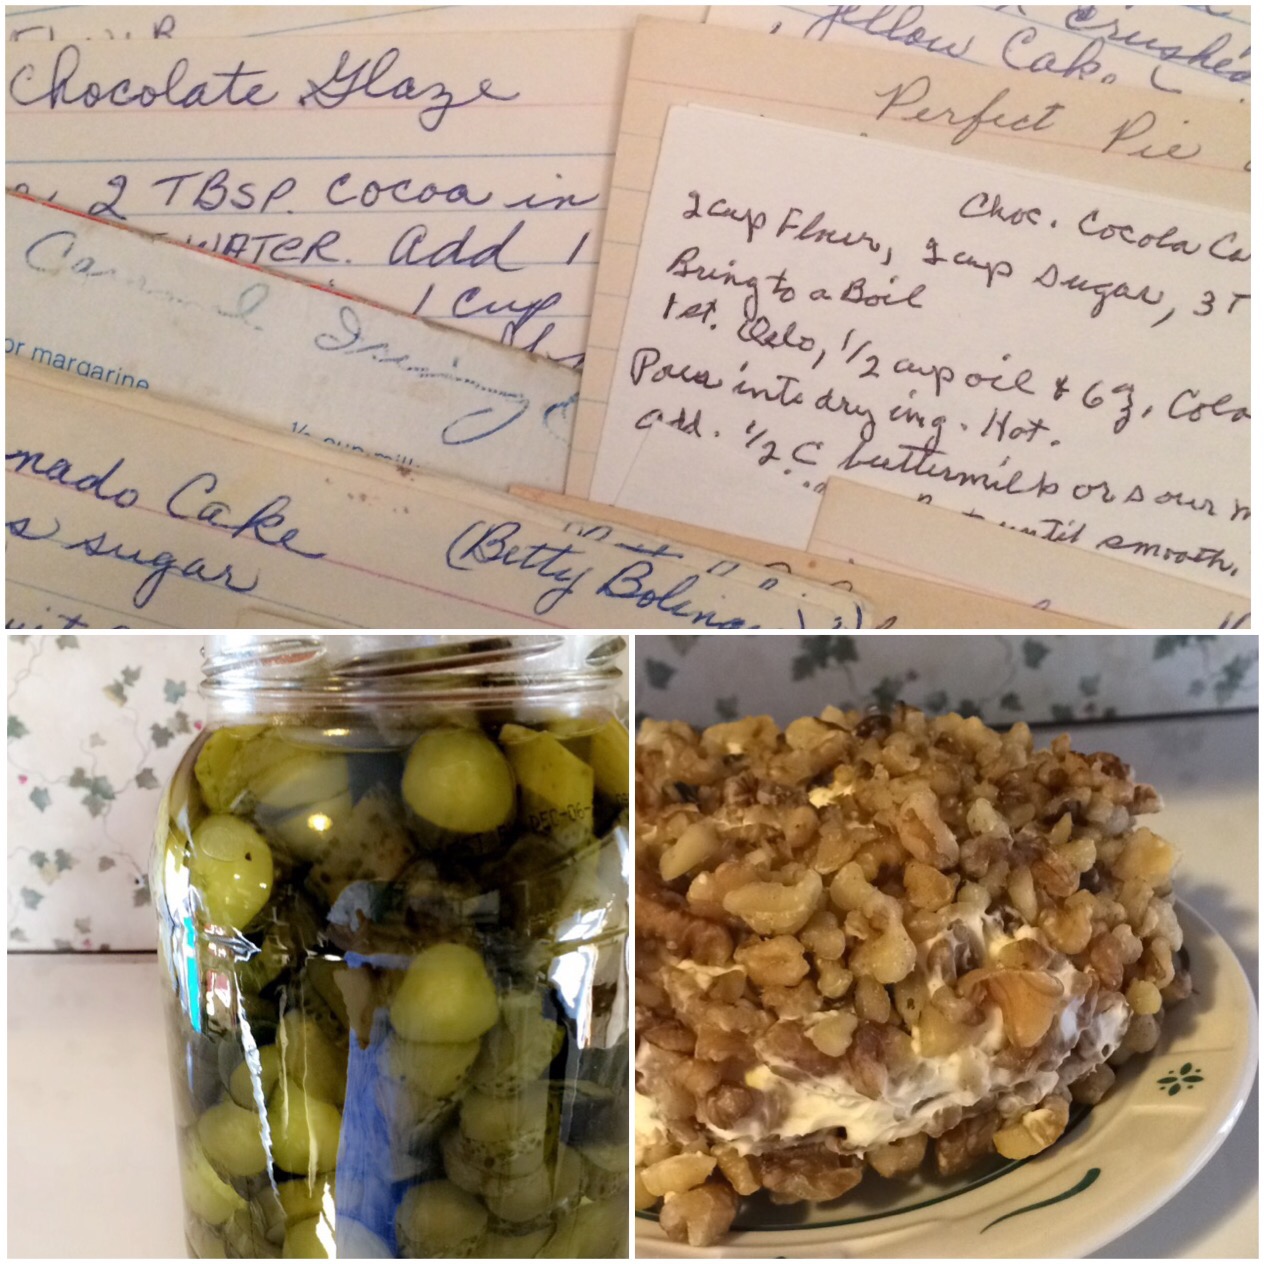 Flour
Chocolate Glaze
2 TBSP. Cocoa in
WATER. Add 1
1 cup
Caramel Icing
or margarine
1/2 cup milk
nado Cake
s sugar
(Betty Boling
crushed
yellow Cake
Perfect Pie
Choc. Cocola Ca
2 cup Flour, 2 cup sugar, 3 T
Bring to a Boil
1 st. Oelo, 1/2 cup oil & 6 oz. Cola
Pour into dry ing. Hot.
add. 1/2 C buttermilk or sour m
until smooth.
DEC-06-